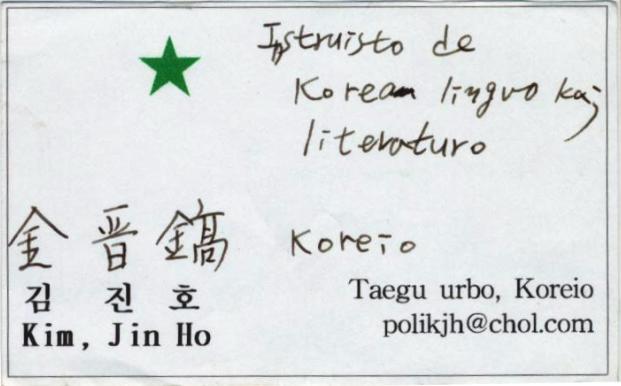 Instruisto de
Korean lingvo kaj
literaturo
金 晋 鎬 Koreio
김 진 호
Kim, Jin Ho
Taegu urbo, Koreio
polikjh@chol.com